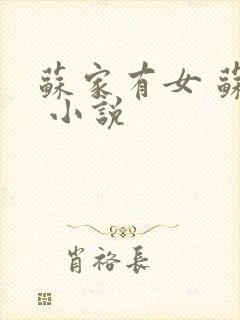 蘇家有女 蘇
小說
肖裕長